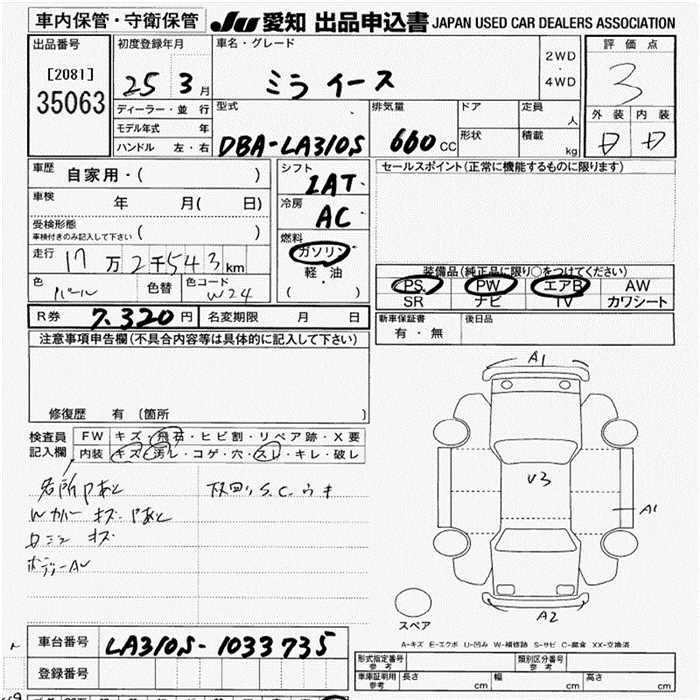 車内保管・守衛保管 JU 愛知 出品申込書 JAPAN USED CAR DEALERS ASSOCIATION
出品番号
[2081]
35063
初度登録年月
25 3 月
ディーラー・並 行
モデル年式 年
ハンドル 左・右
車名・グレード
ミラ イース
2WD
・
4WD
評 価 点
3
外 装 内 装
型式
DBA-LA310S
排気量
660 CC
ドア
形状
定員
人
積載
kg
車歴
自家用・( )
車検
年 月( 日)
受検形態
車検付きのみ記入して下さい ( )
走行
17 万 2 千 543 km
色
パール
色替
色コード
W24
シフト
IAT
冷房
AC
燃料
ガソリン
・
軽・油
( )
セールスポイント(正常に機能するものに限ります)
装備品(純正品に限り○をつけてください)
PS PW エアB AW
SR ナビ TV カワシート
R券 7.320 円 名変期限 月 日
新車保証書
有・無
後日品
注意事項申告欄(不具合内容等は具体的に記入して下さい)
修復歴 有 〔箇所 〕
検査員
記入欄
FW キズ・飛石・ヒビ割・リペア跡・X要
内装 キズ・汚レ・コゲ・穴・スレ・キレ・破レ
各所Pあと
Wカバー キズ Pあと
ロミラ キズ
ボディーAU
下回り S.C. ウキ
A1
U3
A1
A2
スペア
A-キズ E-エクボ U-凹み W-補修跡 S-サビ C-腐食 XX-交換済
車台番号 LA310S-1033735
登録番号
形式指定番号
参 考
類別区分番号
参 考
車庫証明用
参考
長さ cm 幅 cm 高さ cm